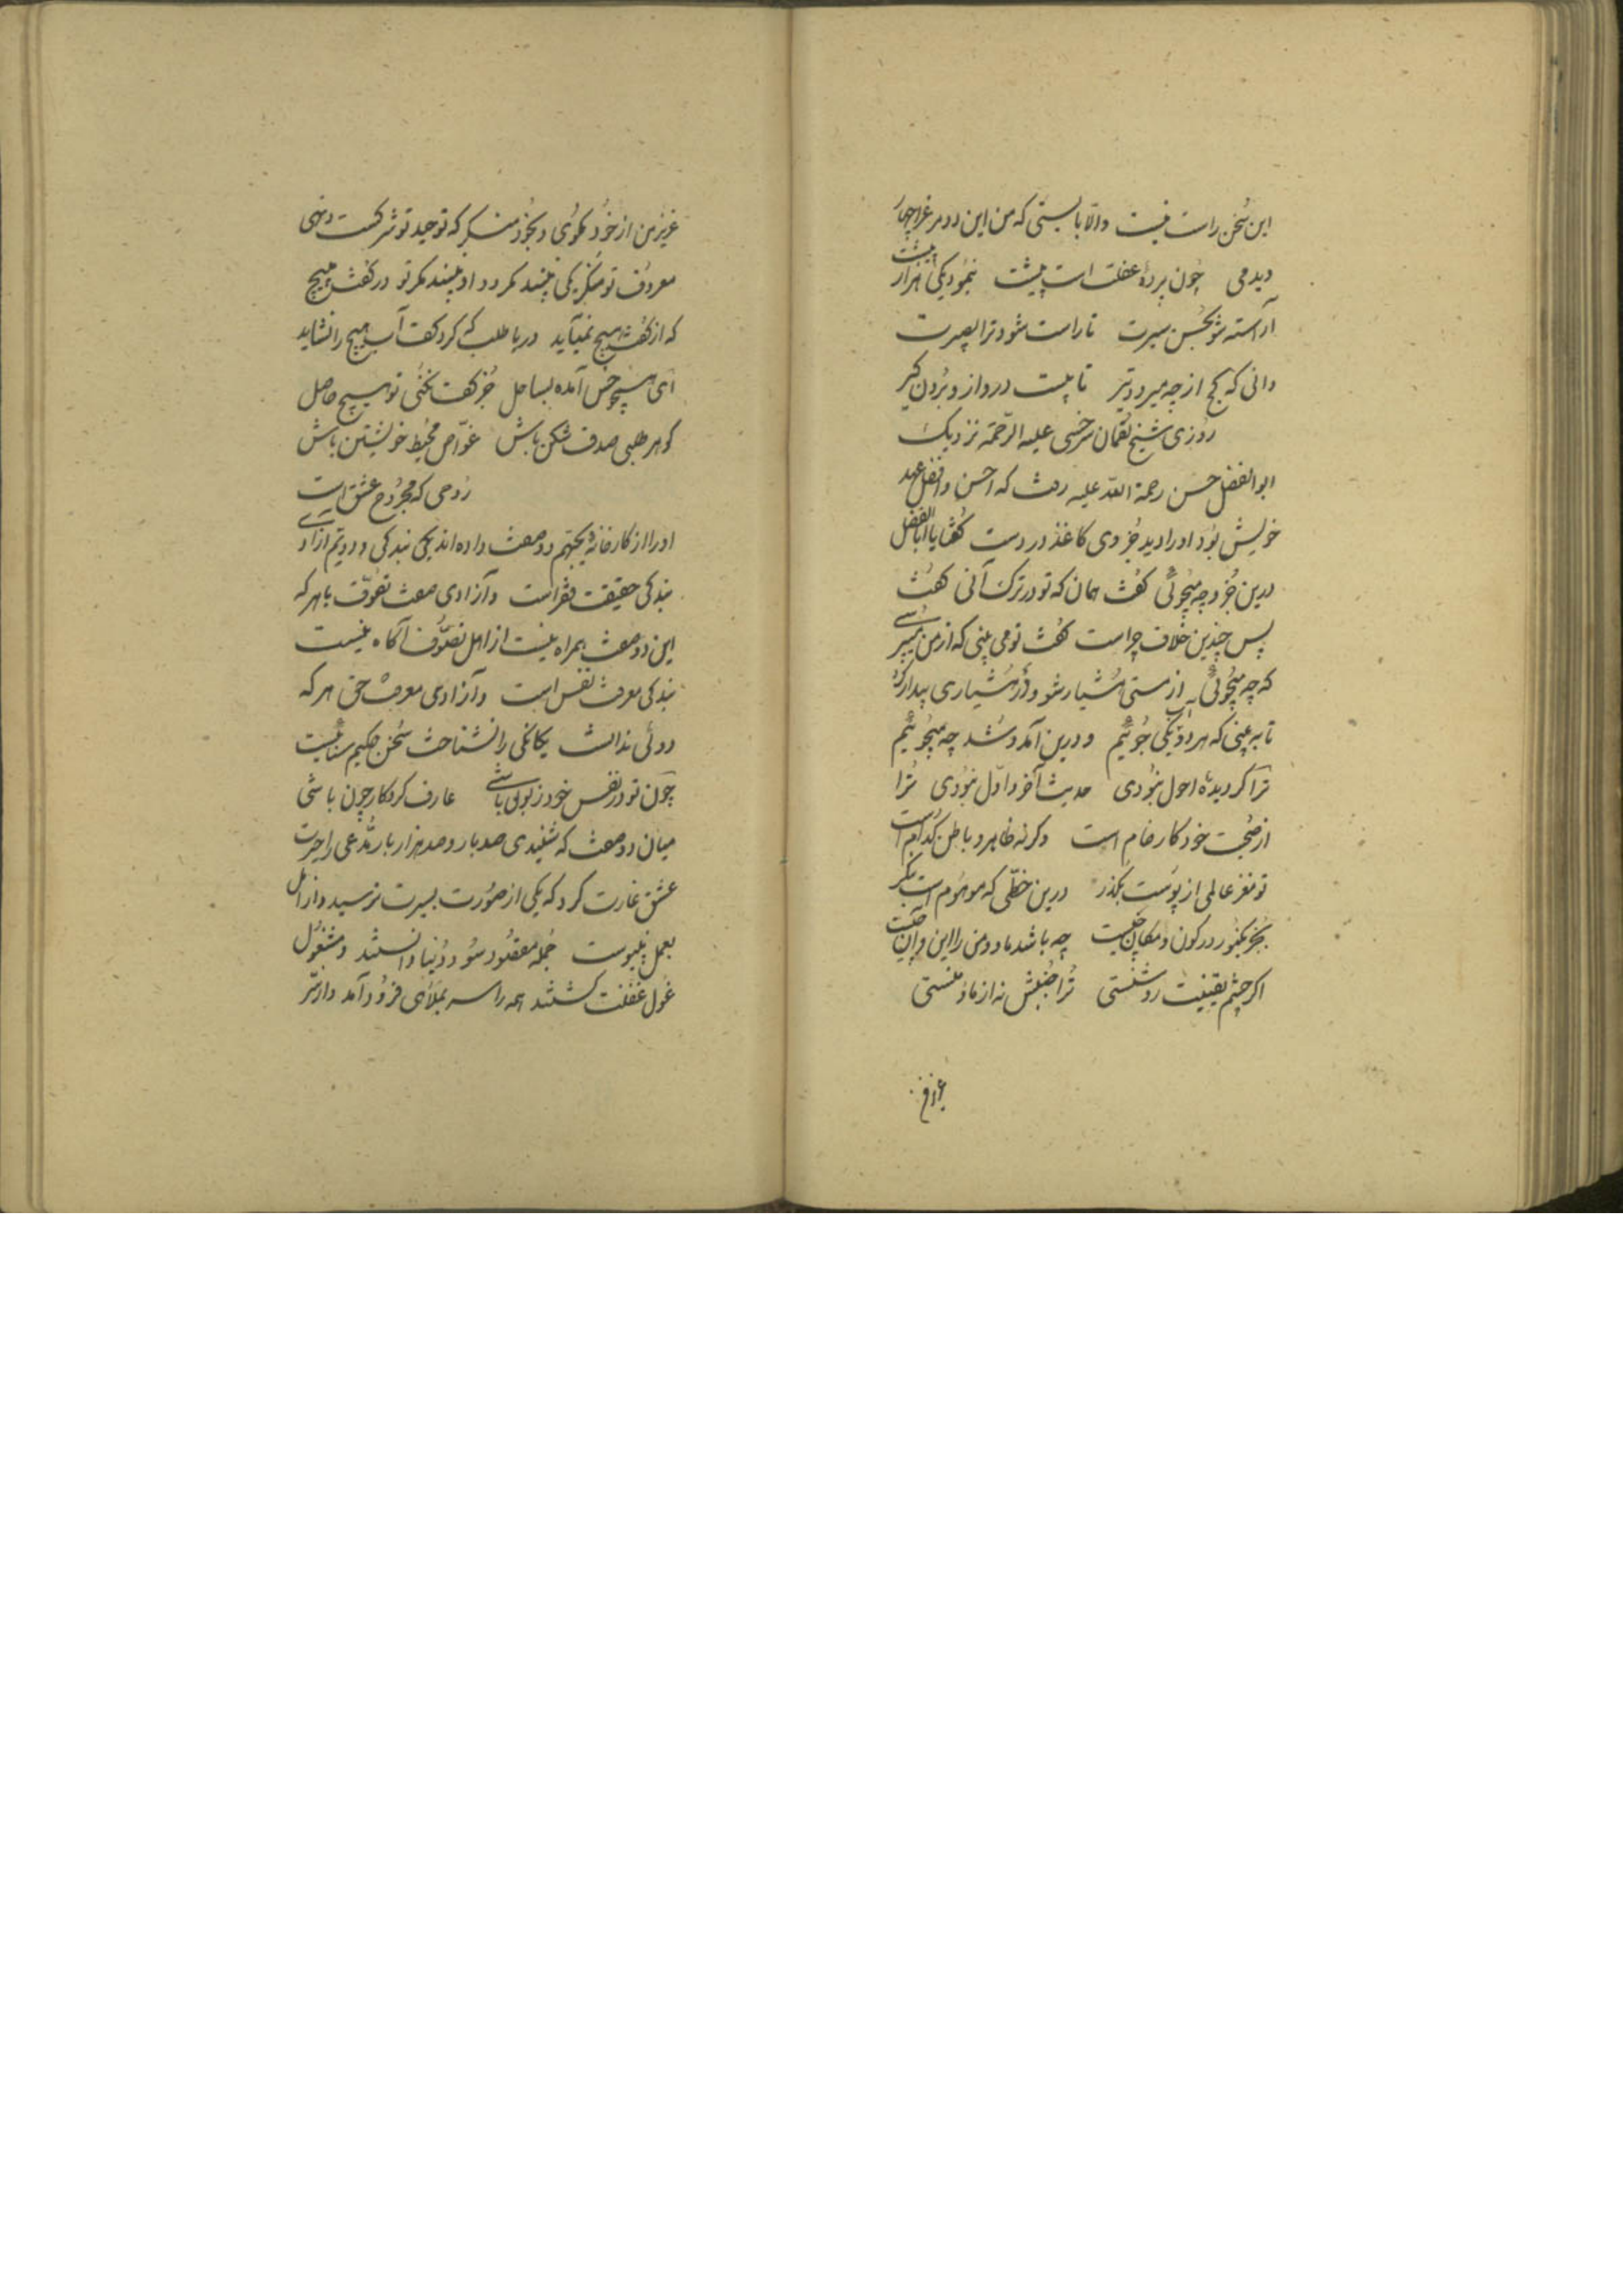 این سخن راست نیست والّا بایستی که من این دو مرغ را چهار
دیدمی چون پردهٔ غفلت است پیشت بنمود یکی هزار بیشت
آراسته شو بحسن سیرت تا راست شود ترا بصیرت
دانی که کج از چه میرود تیر تا پلت در دواز و برون گیر
روزی شیخ لقمان سرخسی علیه الرّحمه نزدیک
ابوالفضل حسن رحمة الله علیه رفت که احسن و افضل عهد
خویش بود او را دید جزوی کاغذ در دست گفت یا اباالفضل
درین جزو چه میجوئی گفت همان که تو در ترک آنی گفت
پس چندین خلاف چراست گفت تو می بینی که از من میپرسی
که چه میجوئی از مستی هشیار شو و از هشیاری بیدار گرد
تا به بینی که هر دو یکی جوئیم و درین آمد و شد چه میجوئیم
ترا گر دیدهٔ احول نبودی حدیث آخر و اوّل نبودی ترا
از صحبت خود کار خام است وگرنه ظاهر و باطن کدام است
تو مغز عالمی از پوست بگذر درین خطّی که موهوم است بنگر
بجز یکنور در کون و مکان چیست چه باشد ما و من را این و آن چیست
اگر چشم یقینت روشنستی ترا جنبش نه از ما و منستی
عزیز من
عزیز من از خود مگوی و بخود منگر که توحید تو شرکست و خی
معروف تو منکر یکی بیند مگر دو او بیند مگر تو در گفت هیچ
که از گفت هیچ نمیآید دریا طلب که گرد کفت آب هیچ را نشاید
ای همچو خس آمده بساحل جز کفت نکنی تو هیچ حاصل
گوهر طلبی صدف شکن باش غوّاص محیط خویشتن باش
روحی که مجروح عشق است
او را از کارخانه یحبّهم دو صفت داده اند یکی بندگی و دویّم آزادی
بندگی حقیقت فقر است و آزادی صفت تصوّف با هر که
این دو صفت همراه نیست از اهل تصوّف آگاه نیست
بندگی معرفت نفس است و آزادی معرفت حق هر که
دوئی ندانست یگانگی را نشناخت سخن حکیم سنائیست
چون تو در نفس خود زبون باشی عارف کردگار چون باشی
میان دو صفت که شنیدی صد بار و صد هزار بار مدّعی را حیرت
عشق غارت کرد که یکی از صورت بسیرت نرسید و از امل
بعمل نپیوست جمله مقصود سود و دنیا دانستند و مشغول
غول غفلت گشتند همه را سر بملأی فرود آمد و از سّر